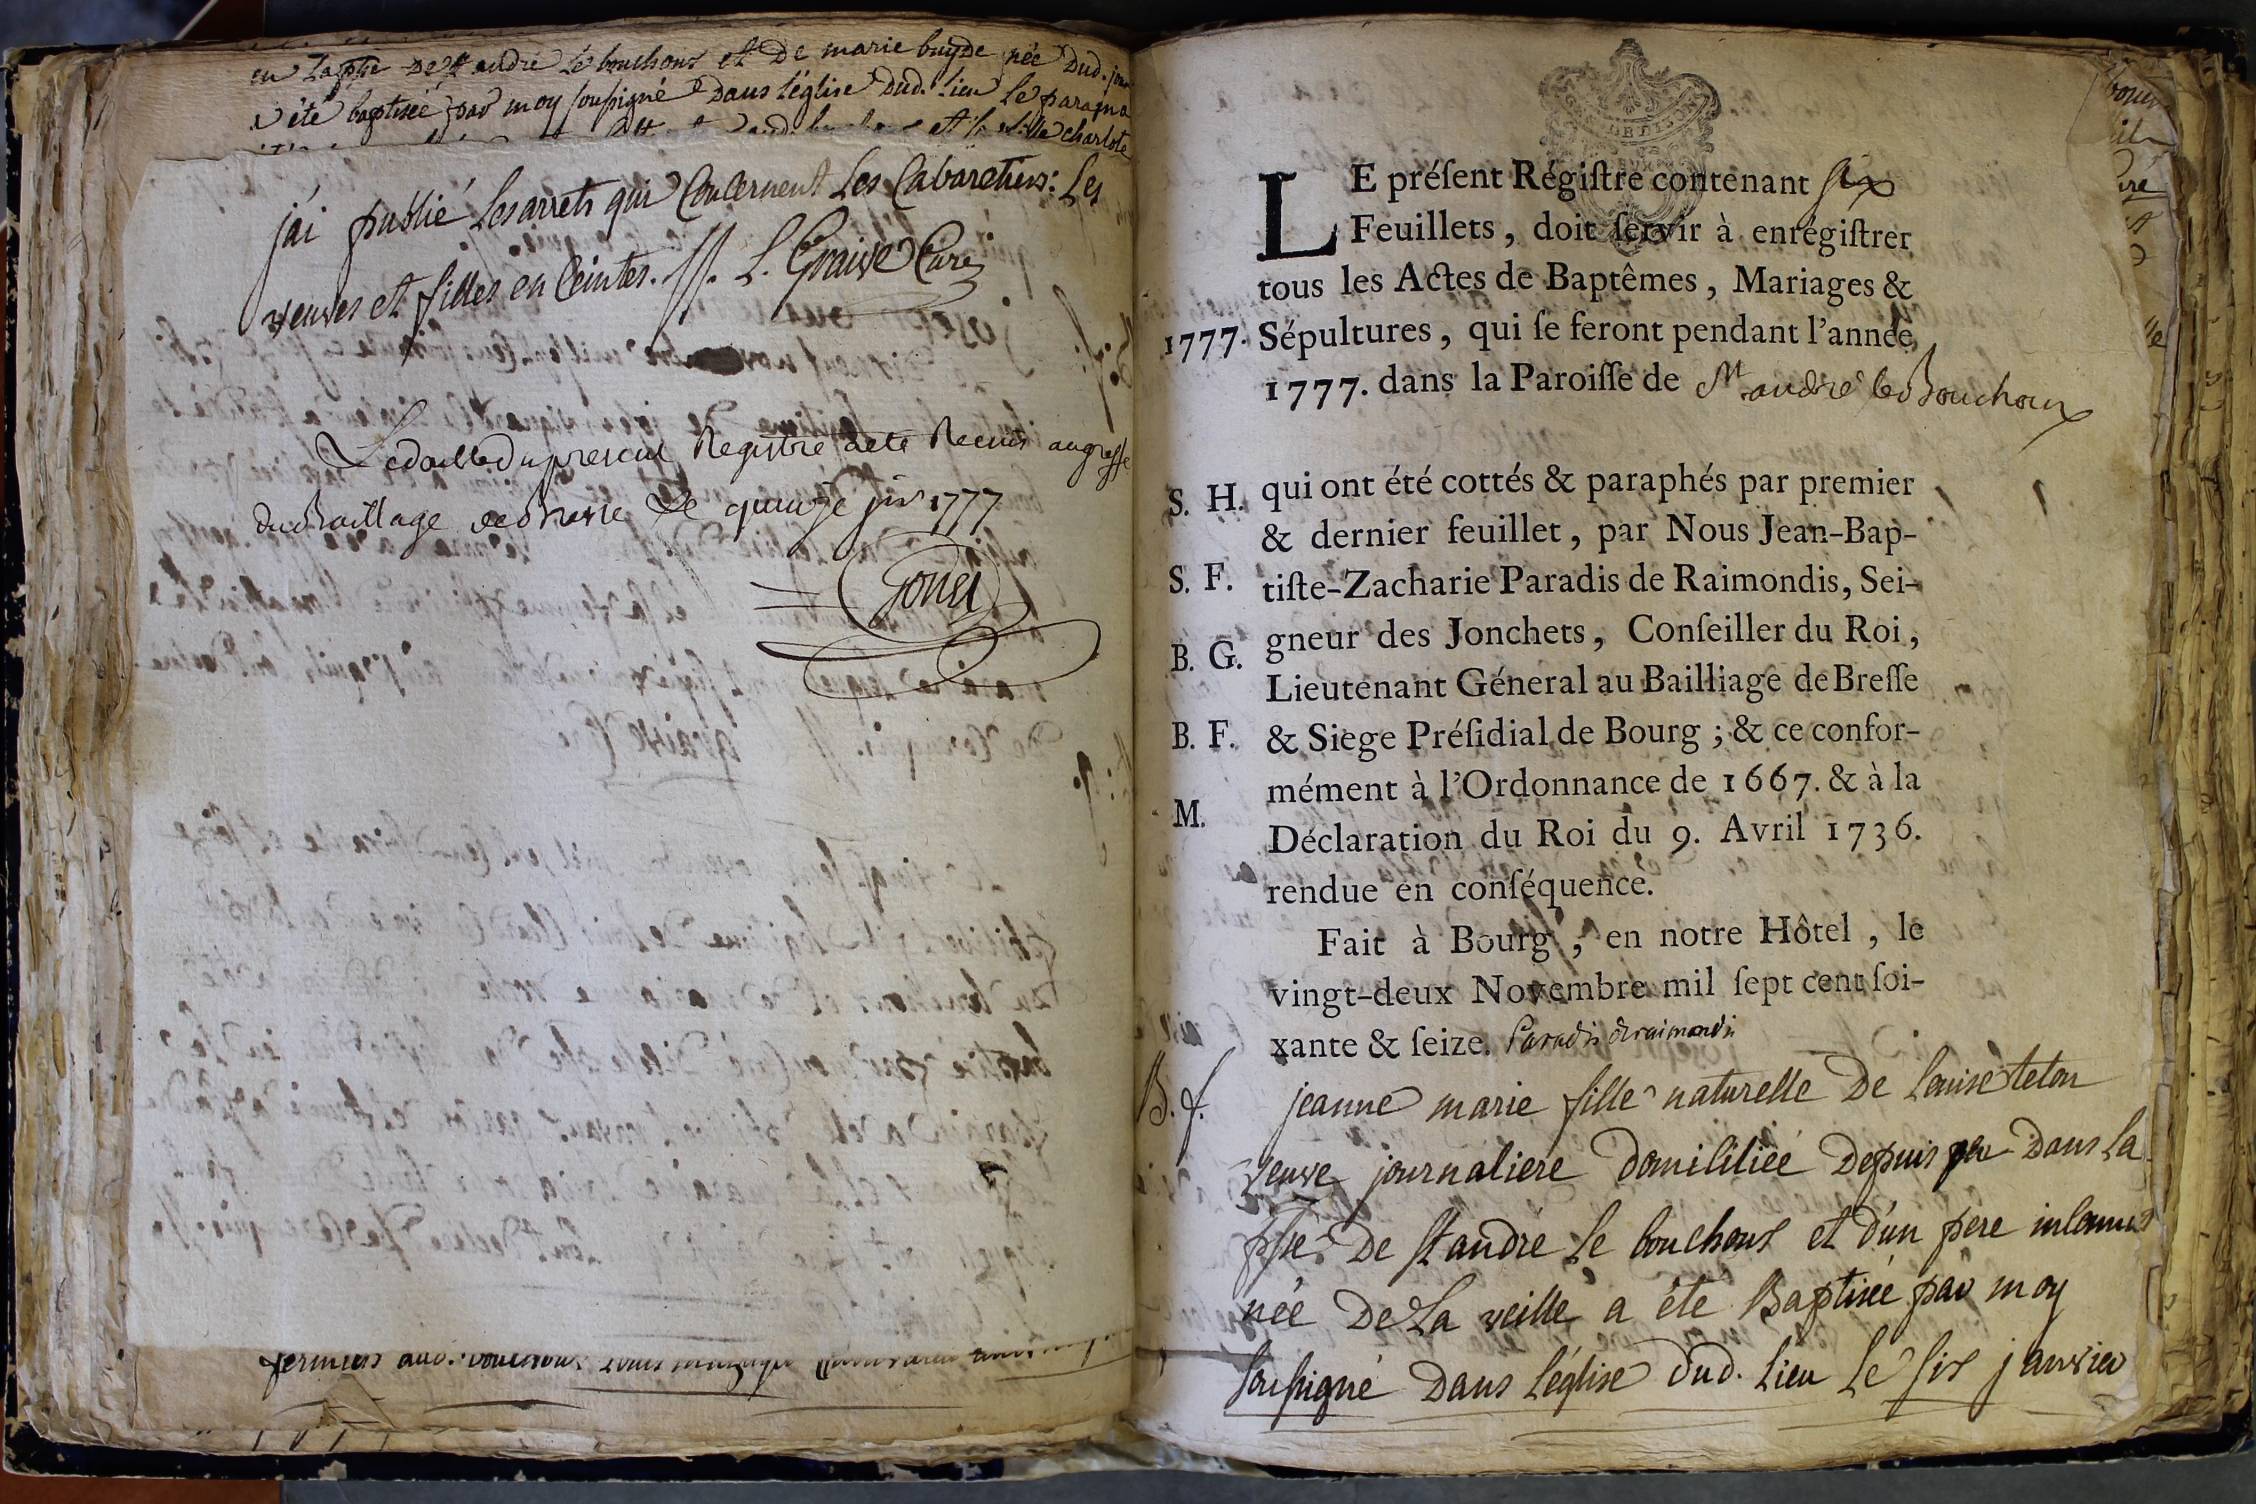 en La psse De st andré le bouchoux et De marie buyde née Dud. jour
a été baptisée par moy soussigné Dans l'église Dud. Lieu Le
et la fille charlote
j'ai publié les arrets qui Concernent Les Cabaretiers: Les
veuves et filles en Ceintes. //. L. Graive Curé
Le double du present Registre a eté Remis au greffe
du Bailliage de Bresse Le quinze jer 1777
Gonet
fermiers aud. bouchoux
LE préſent Régiſtre contenant six
Feuillets, doit ſervir à enrégiſtrer
tous les Actes de Baptêmes, Mariages &
1777. Sépultures, qui ſe feront pendant l'année
1777. dans la Paroiſſe de St andré le Bouchoux
S. H. qui ont été cottés & paraphés par premier
& dernier feuillet, par Nous Jean-Bap-
S. F. tiſte-Zacharie Paradis de Raimondis, Sei-
gneur des Jonchets, Conſeiller du Roi,
B. G.
Lieutenant Géneral au Bailliage de Breſſe
B. F. & Siege Préſidial de Bourg; & ce confor-
mément à l'Ordonnance de 1667. & à la
M.
Déclaration du Roi du 9. Avril 1736.
rendue en conſéquence.
Fait à Bourg, en notre Hôtel, le
vingt-deux Novembre mil ſept cent ſoi-
xante & ſeize. Paradis deraimondis
B. f. jeanne marie fille naturelle De Louise teton
veuve journaliere domiliciée Depuis peu Dans la
psse De St andré le bouchoux et d'un pere inconnus
née De La veille a été Baptisée par moy
soussigné Dans l'église dud. Lieu Le six janvier